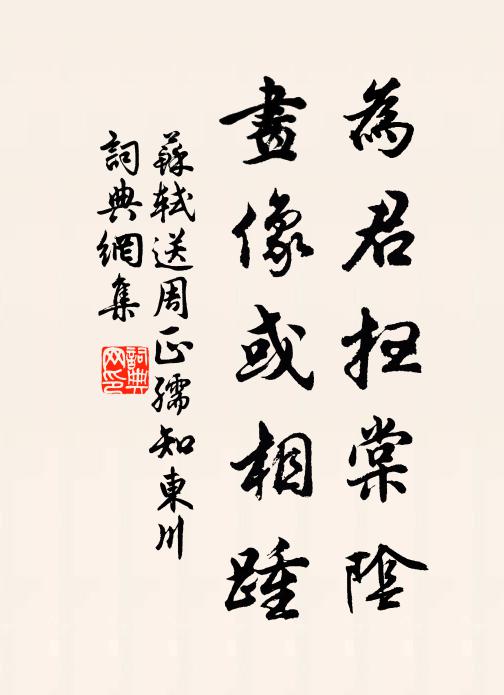 為君扫棠陰
畫像或相踵
蘇軾送周正孺知東川
詞典網集
詞典网印